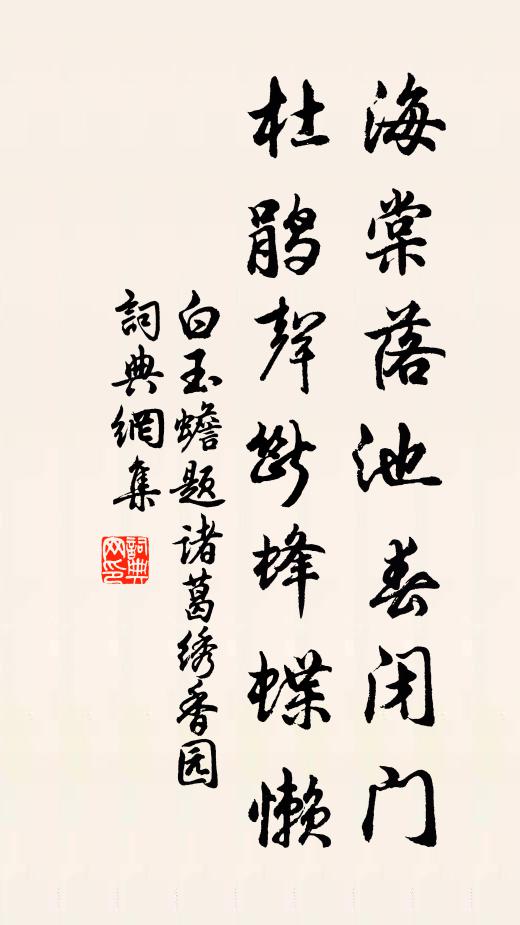 海棠落池春闭门
杜鹃聲断蜂蝶懒
白玉蟾题诸葛绣香园
詞典網集
詞典网印